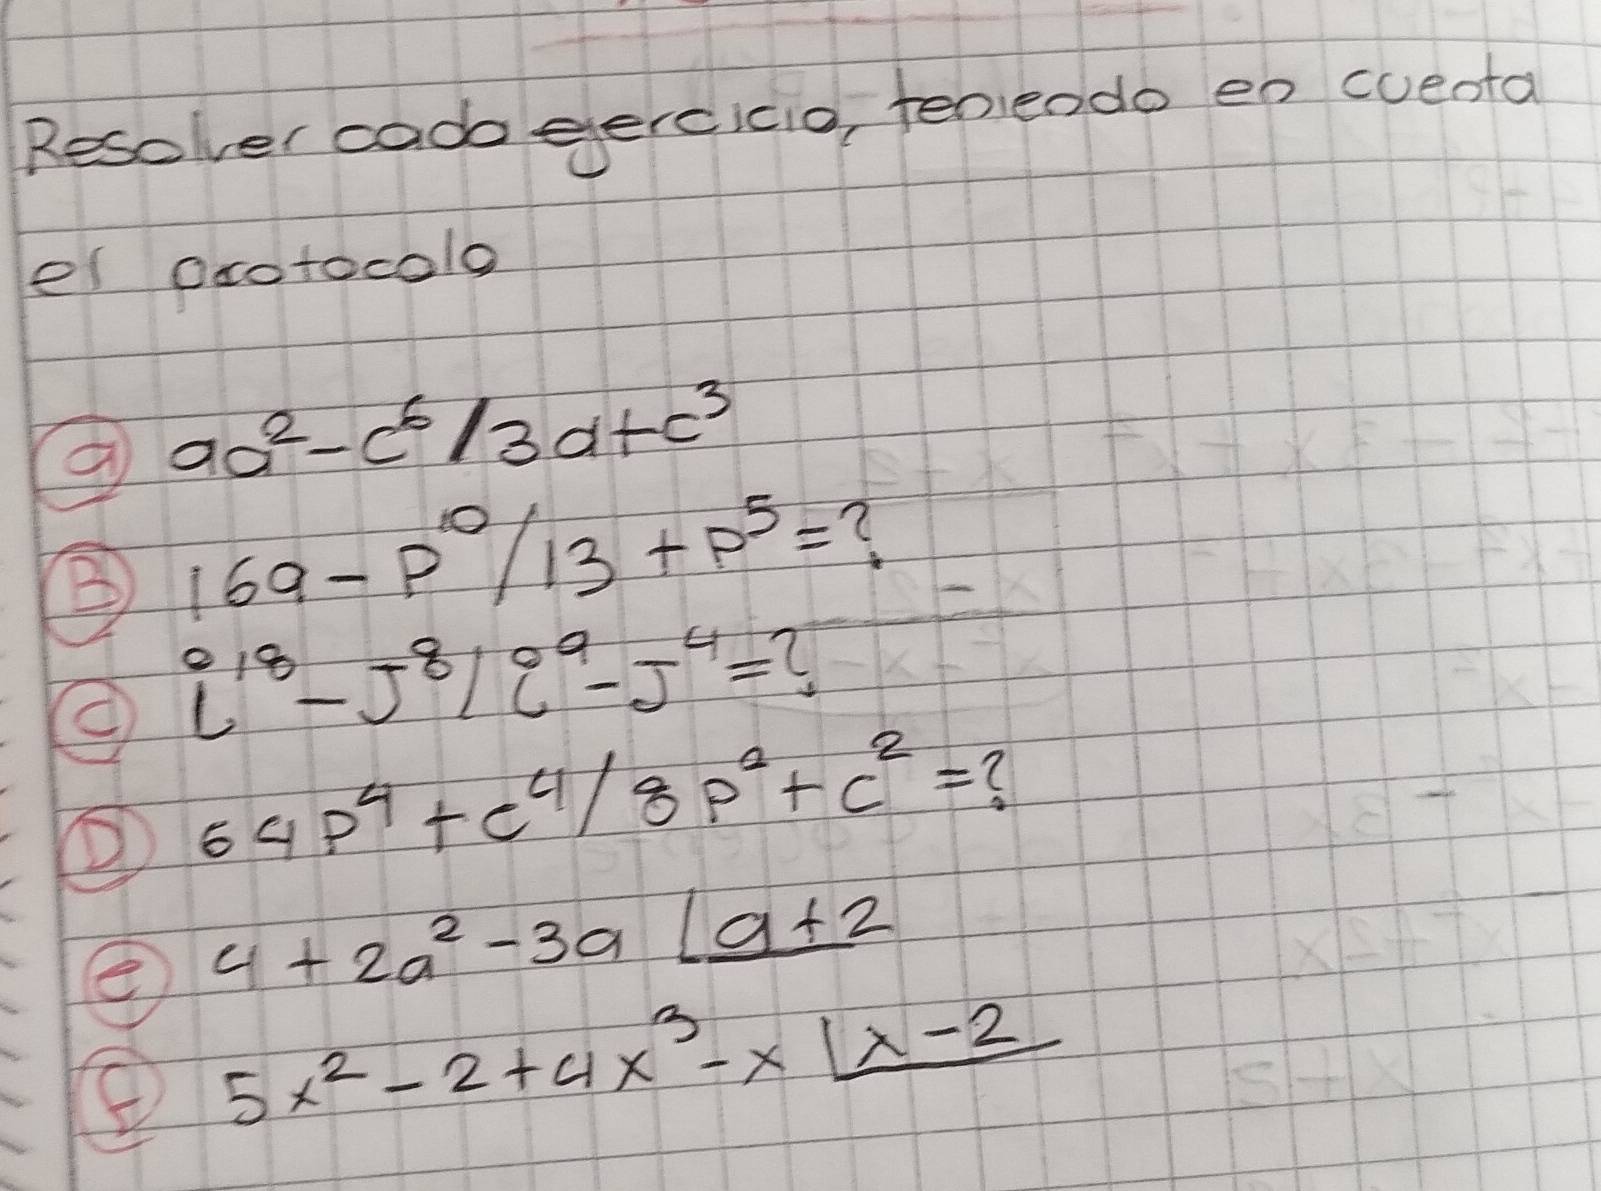 Resolver cada ejercicio, teniendo en cuenta
el protocolo
a 9a² - c⁶ / 3a + c³
B 169 - p¹⁰ / 13 + p⁵ = ?
C i¹⁸ - J⁸ / i⁹ - J⁴ = ?
D 64p⁴ + c⁴ / 8p² + c² = ?
e 4 + 2a² - 3a | a + 2
f 5x² - 2 + 4x³ - x | x - 2